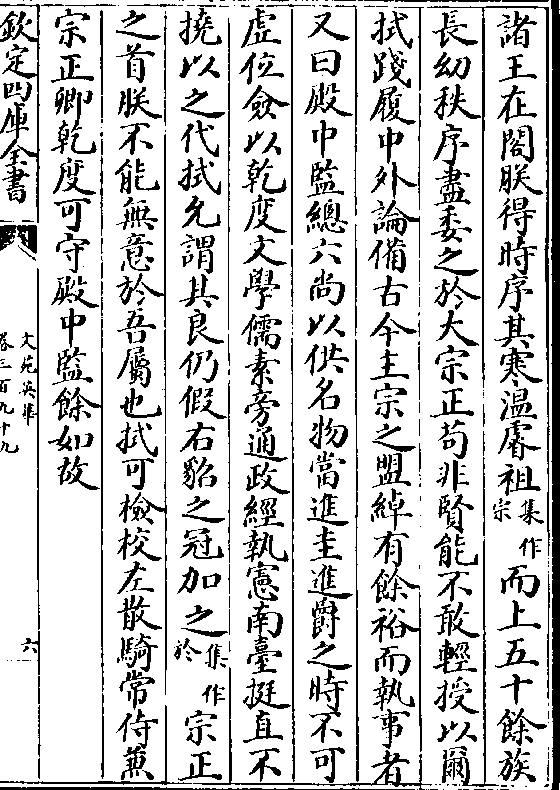 諸王在閣朕得時序其寒溫睿祖集作宗而上五十餘族
長幼秩序盡委之於大宗正苟非賢能不敢輕授以爾
拭踐履中外論備古今主宗之盟綽有餘裕而執事者
又曰殿中監總六尚以供名物當進圭進爵之時不可
虚位僉以乾度文學儒素旁通政經執憲南臺挺直不
撓以之代拭允謂其良仍假右貂之冠加之集作於宗正
之首朕不能無意於吾屬也拭可檢校左散騎常侍兼
宗正卿乾度可守殿中監餘如故
欽定四庫全書
文苑英華
卷三百九十九
六